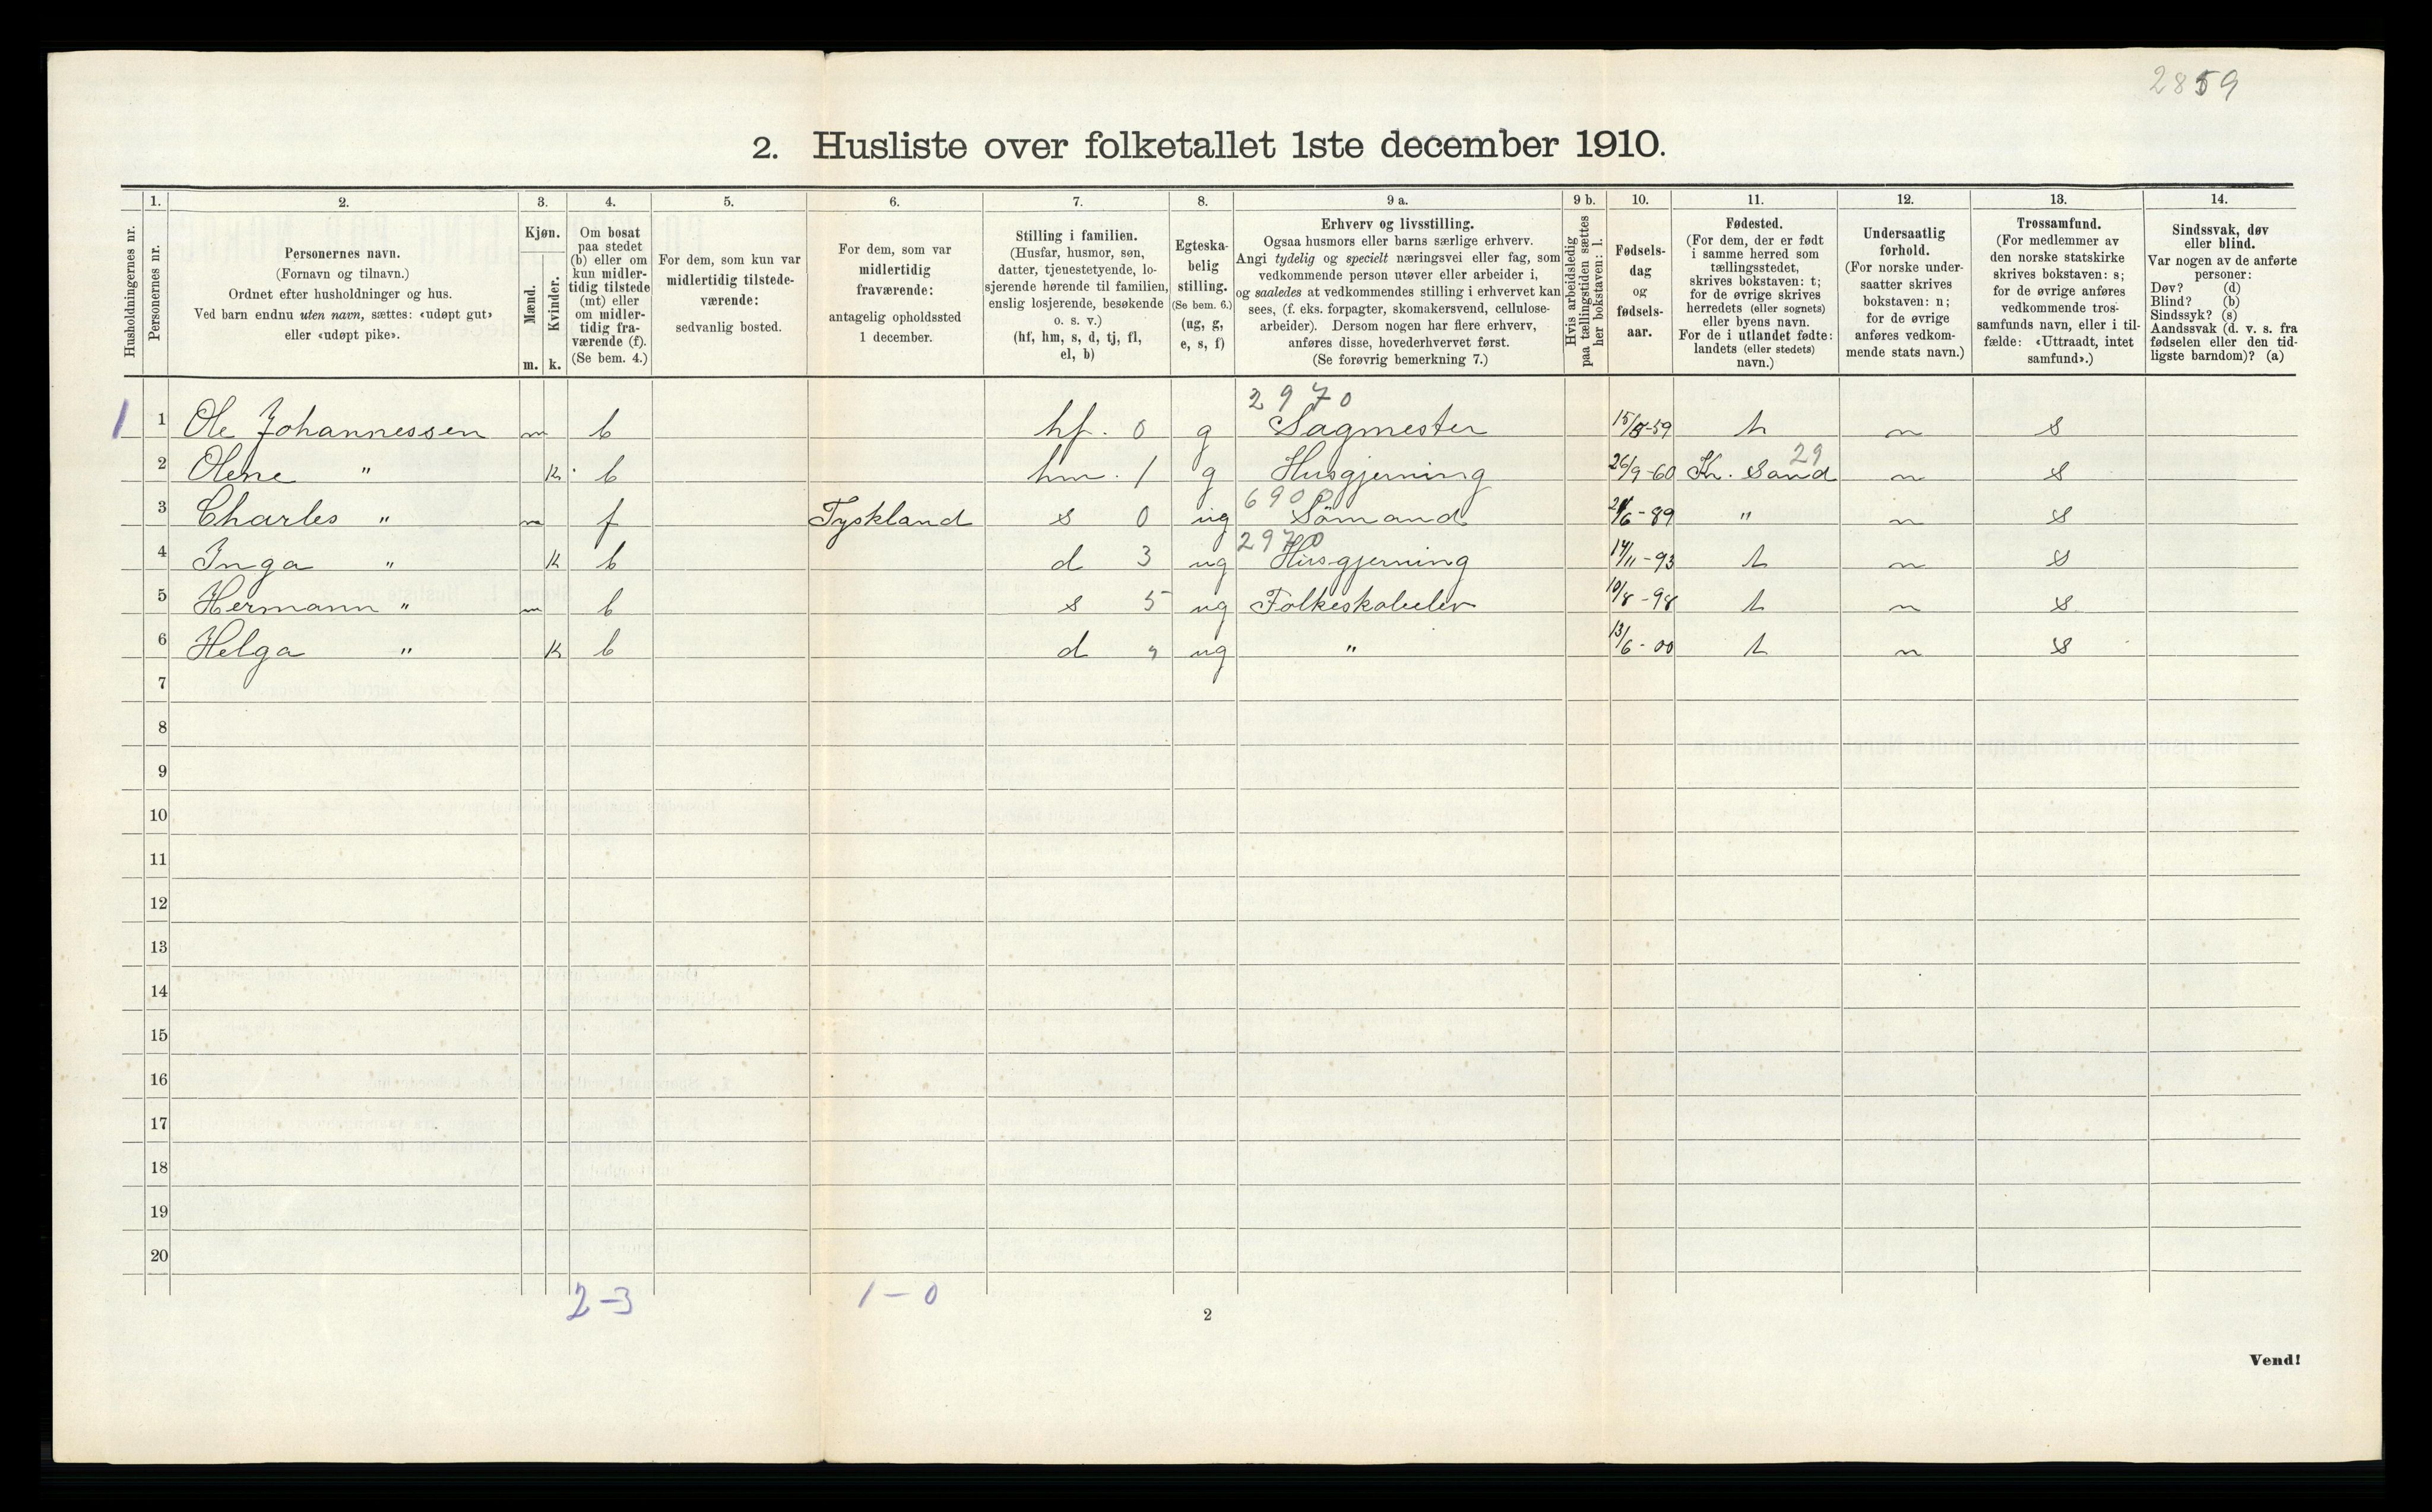 2859
2. Husliste over folketallet 1ste december 1910.
Husholdningernes nr.
1.
Personernes nr.
2.
Personernes navn.
(Fornavn og tilnavn.)
Ordnet efter husholdninger og hus.
Ved barn endnu uten navn, sættes: «udøpt gut»
eller «udøpt pike».
3.
Kjøn.
Mænd.
Kvinder.
m. k.
4.
Om bosat
paa stedet
(b) eller om
kun midler-
tidig tilstede
(mt) eller
om midler-
tidig fra-
værende (f).
(Se bem. 4.)
5.
For dem, som kun var
midlertidig tilstede-
værende:
sedvanlig bosted.
6.
For dem, som var
midlertidig
fraværende:
antagelig opholdssted
1 december.
7.
Stilling i familien.
(Husfar, husmor, søn,
datter, tjenestetyende, lo-
sjerende hørende til familien,
enslig losjerende, besøkende
o. s. v.)
(hf, hm, s, d, tj, fl,
el, b)
8.
Egteska-
belig
stilling.
(Se bem. 6.)
(ug, g,
e, s, f)
9 a.
Erhverv og livsstilling.
Ogsaa husmors eller barns særlige erhverv.
Angi tydelig og specielt næringsvei eller fag, som
vedkommende person utøver eller arbeider i,
og saaledes at vedkommendes stilling i erhvervet kan
sees, (f. eks. forpagter, skomakersvend, cellulose-
arbeider). Dersom nogen har flere erhverv,
anføres disse, hovederhvervet først.
(Se forøvrig bemerkning 7.)
9 b.
Hvis arbeidsledig
paa tællingstiden sættes
her bokstaven: l.
10.
Fødsels-
dag
og
fødsels-
aar.
11.
Fødested.
(For dem, der er født
i samme herred som
tællingsstedet,
skrives bokstaven: t;
for de øvrige skrives
herredets (eller sognets)
eller byens navn.
For de i utlandet fødte:
landets (eller stedets)
navn.)
12.
Undersaatlig
forhold.
(For norske under-
saatter skrives
bokstaven: n;
for de øvrige
anføres vedkom-
mende stats navn.)
13.
Trossamfund.
(For medlemmer av
den norske statskirke
skrives bokstaven: s;
for de øvrige anføres
vedkommende tros-
samfunds navn, eller i til-
fælde: «Uttraadt, intet
samfund».)
14.
Sindssvak, døv
eller blind.
Var nogen av de anførte
personer:
Døv? (d)
Blind? (b)
Sindssyk? (s)
Aandssvak (d. v. s. fra
fødselen eller den tid-
ligste barndom)? (a)
2970
1 1 Ole Johannessen m b hf. 0 g Sagmester 15/8-59 t n s
29
2 Olene " k b hm. 1 g Husgjerning 26/9-60 Kr. Sand n s
6900
3 Charles " m f Tyskland s 0 ug Sömand /6-89 " n s
2970
4 Inga " k b d 3 ug Husgjerning 14/11-93 t n s
5 Hermann " m b s 5 ug Folkeskoleelev 10/8-98 t n s
6 Helga " k b d " ug " 13/6-00 t n s
7
8
9
10
11
12
13
14
15
16
17
18
19
20
2-3 1-0
2
Vend!